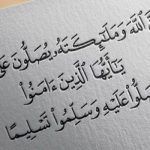 اللَّهَ وَمَلَٰٓئِكَتَهُۥ يُصَلُّونَ عَلَى
يَٰٓأَيُّهَا الَّذِينَ ءَامَنُوا۟
صَلُّوا۟ عَلَيْهِ وَسَلِّمُوا۟ تَسْلِيمًا